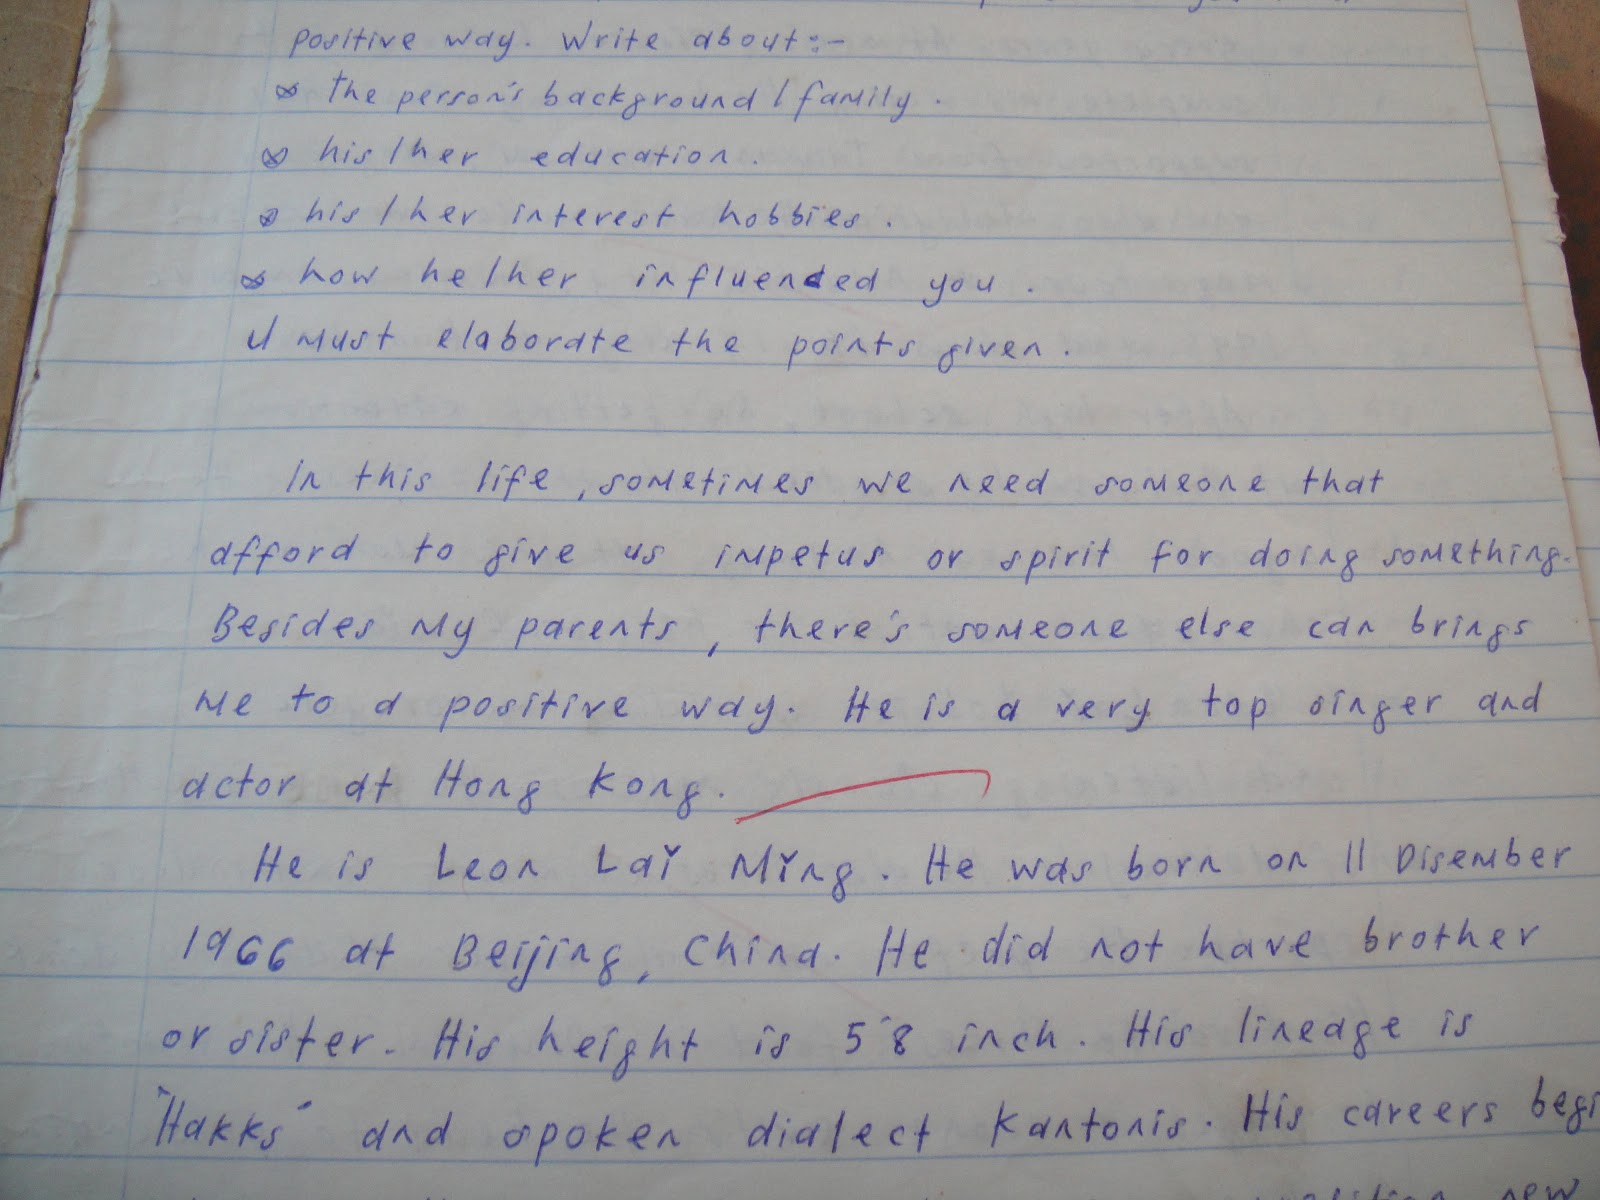 positive way. Write about:-
the person's background / family.
his/her education.
his/her interest hobbies.
how he/her influenced you.
U must elaborate the points given.
In this life, sometimes we need someone that
afford to give us impetus or spirit for doing something.
Besides my parents, there's someone else can brings
me to a positive way. He is a very top singer and
actor at Hong Kong.
He is Leon Lai Ming. He was born on 11 Disember
1966 at Beijing, China. He did not have brother
or sister. His height is 5'8 inch. His lineage is
"Hakks" and spoken dialect Kantonis. His careers begi
new